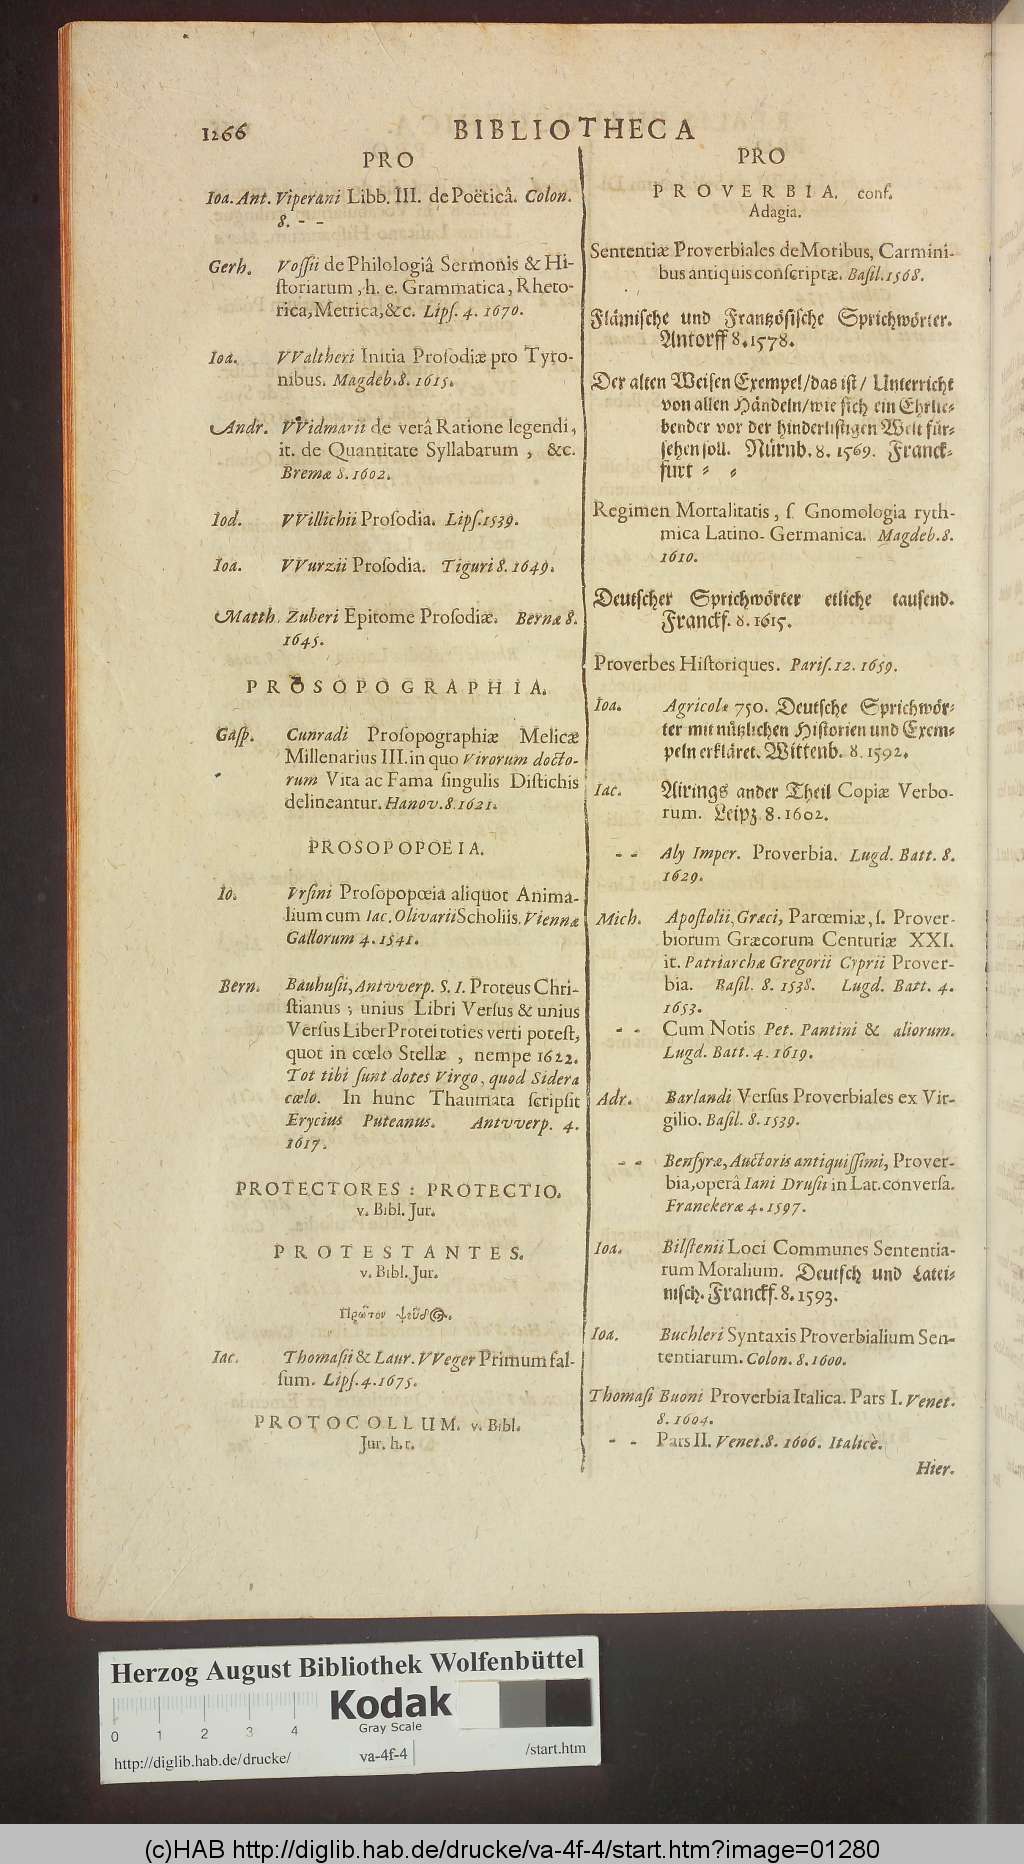 1266
BIBLIOTHECA
PRO
Ioa. Ant. Viperani Libb. III. de Poëticâ. Colon.
8. - -
Gerh. Vossii de Philologiâ Sermonis & Hi-
ſtoriarum, h. e. Grammatica, Rheto-
rica, Metrica, &c. Lipſ. 4. 1670.
Ioa. VValtheri Initia Proſodiæ pro Tyro-
nibus. Magdeb. 8. 1615.
Andr. VVidmarii de verâ Ratione legendi,
it. de Quantitate Syllabarum, &c.
Bremæ 8. 1602.
Iod. VVillichii Proſodia. Lipſ. 1539.
Ioa. VVurzii Proſodia. Tiguri 8. 1649.
Matth. Zuberi Epitome Proſodiæ. Bernæ 8.
1645.
PROSOPOGRAPHIA.
Gaſp. Cunradi Proſopographiæ Melicæ
Millenarius III. in quo Virorum docto-
rum Vita ac Fama ſingulis Diſtichis
delineantur. Hanov. 8. 1621.
PROSOPOPOEIA.
Io. Vrſini Proſopopœia aliquot Anima-
lium cum Iac. Olivarii Scholiis. Viennæ
Gallorum 4. 1541.
Bern. Bauhuſii, Antvverp. S. I. Proteus Chri-
ſtianus, unius Libri Verſus & unius
Verſus Liber Protei toties verti poteſt,
quot in cœlo Stellæ, nempe 1622.
Tot tibi ſunt dotes Virgo, quod Sidera
cœlo. In hunc Thaumata ſcripſit
Erycius Puteanus. Antvverp. 4.
1617.
PROTECTORES: PROTECTIO.
v. Bibl. Jur.
PROTESTANTES.
v. Bibl. Jur.
Πρῶτον ψεῦδος.
Iac. Thomaſii & Laur. VVeger Primum fal-
ſum. Lipſ. 4. 1675.
PROTOCOLLUM. v. Bibl.
Jur. h. t.
PRO
PROVERBIA. conf.
Adagia.
Sententiæ Proverbiales de Moribus, Carmini-
bus antiquis conſcriptæ. Baſil. 1568.
Flämiſche und Frantzöſiſche Sprichwörter.
Antorff 8. 1578.
Der alten Weiſen Exempel/ das iſt/ Unterricht
von allen Händeln/ wie ſich ein Ehrlie-
bender vor der hinderliſtigen Welt für-
ſehen ſoll. Nürnb. 8. 1569. Franck-
furt - -
Regimen Mortalitatis, ſ. Gnomologia ryth-
mica Latino-Germanica. Magdeb. 8.
1610.
Deutſcher Sprichwörter etliche tauſend.
Franckf. 8. 1615.
Proverbes Hiſtoriques. Pariſ. 12. 1659.
Ioa. Agricolæ 750. Deutſche Sprichwör-
ter mit nützlichen Hiſtorien und Exem-
peln erkläret. Wittenb. 8. 1592.
Iac. Airings ander Theil Copiæ Verbo-
rum. Leipz 8. 1602.
- - Aly Imper. Proverbia. Lugd. Batt. 8.
1629.
Mich. Apoſtolii, Græci, Parœmiæ, ſ. Prover-
biorum Græcorum Centuriæ XXI.
it. Patriarchæ Gregorii Cyprii Prover-
bia. Baſil. 8. 1538. Lugd. Batt. 4.
1653.
- - Cum Notis Pet. Pantini & aliorum.
Lugd. Batt. 4. 1619.
Adr. Barlandi Verſus Proverbiales ex Vir-
gilio. Baſil. 8. 1539.
- - Benſyræ, Auctoris antiquiſſimi, Prover-
bia, operâ Iani Druſii in Lat. converſa.
Franekeræ 4. 1597.
Ioa. Bilſtenii Loci Communes Sententia-
rum Moralium. Deutſch und Latei-
niſch. Franckf. 8. 1593.
Ioa. Buchleri Syntaxis Proverbialium Sen-
tentiarum. Colon. 8. 1600.
Thomaſi Buoni Proverbia Italica. Pars I. Venet.
8. 1604.
- - Pars II. Venet. 8. 1606. Italicè.
Hier.
Herzog August Bibliothek Wolfenbüttel
Kodak
Gray Scale
0 1 2 3 4
http://diglib.hab.de/drucke/ va-4f-4 /start.htm
(c)HAB http://diglib.hab.de/drucke/va-4f-4/start.htm?image=01280